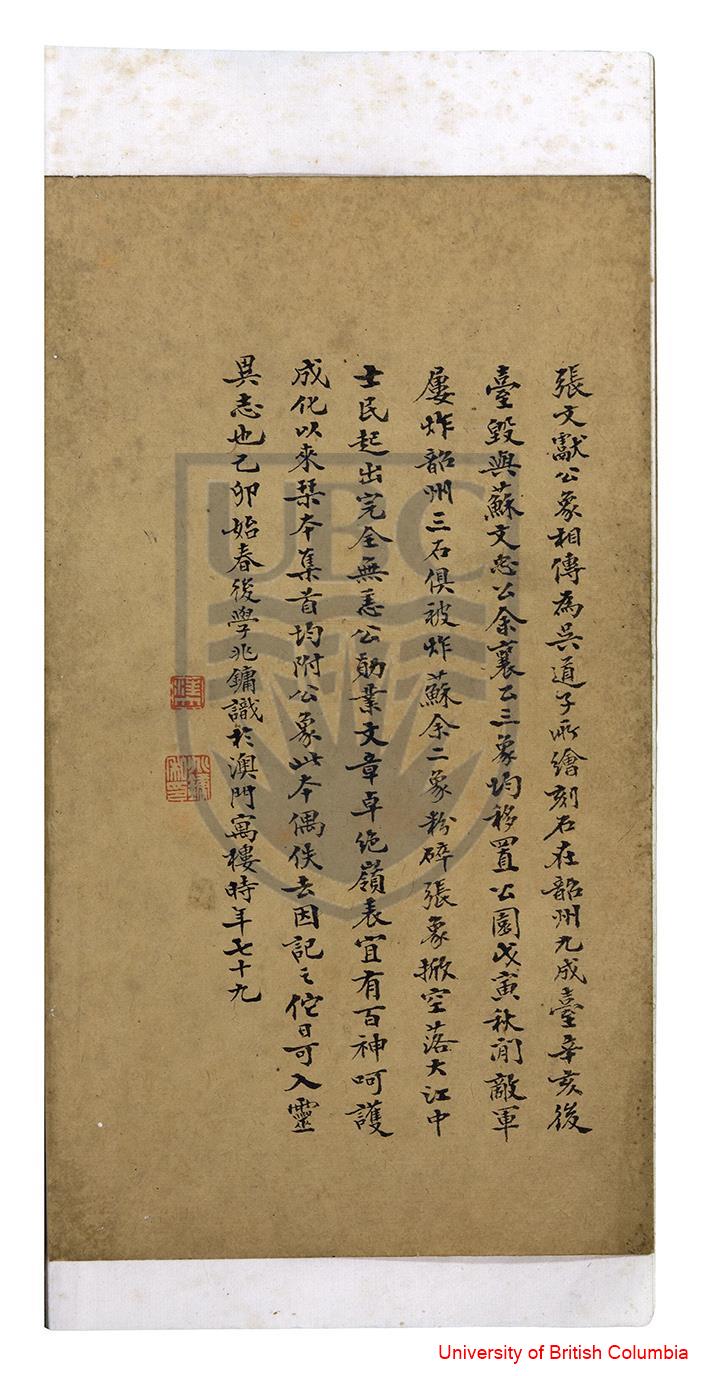 張文獻公象相傳為吳道子所繪刻石在韶州九成臺辛亥後
臺毀與蘇文忠公余襄公三象均移置公園戊寅秋間敵軍
屢炸韶州三石俱被炸蘇余二象粉碎張象掀空落大江中
士民起出完全無恙公勛業文章卓絶嶺表宜有百神呵護
成化以來栞本集首均附公象此本偶佚去因記之佗日可入靈
異志也乙卯始春後學兆鏞識於澳門寓樓時年七十九
UBC
University of British Columbia